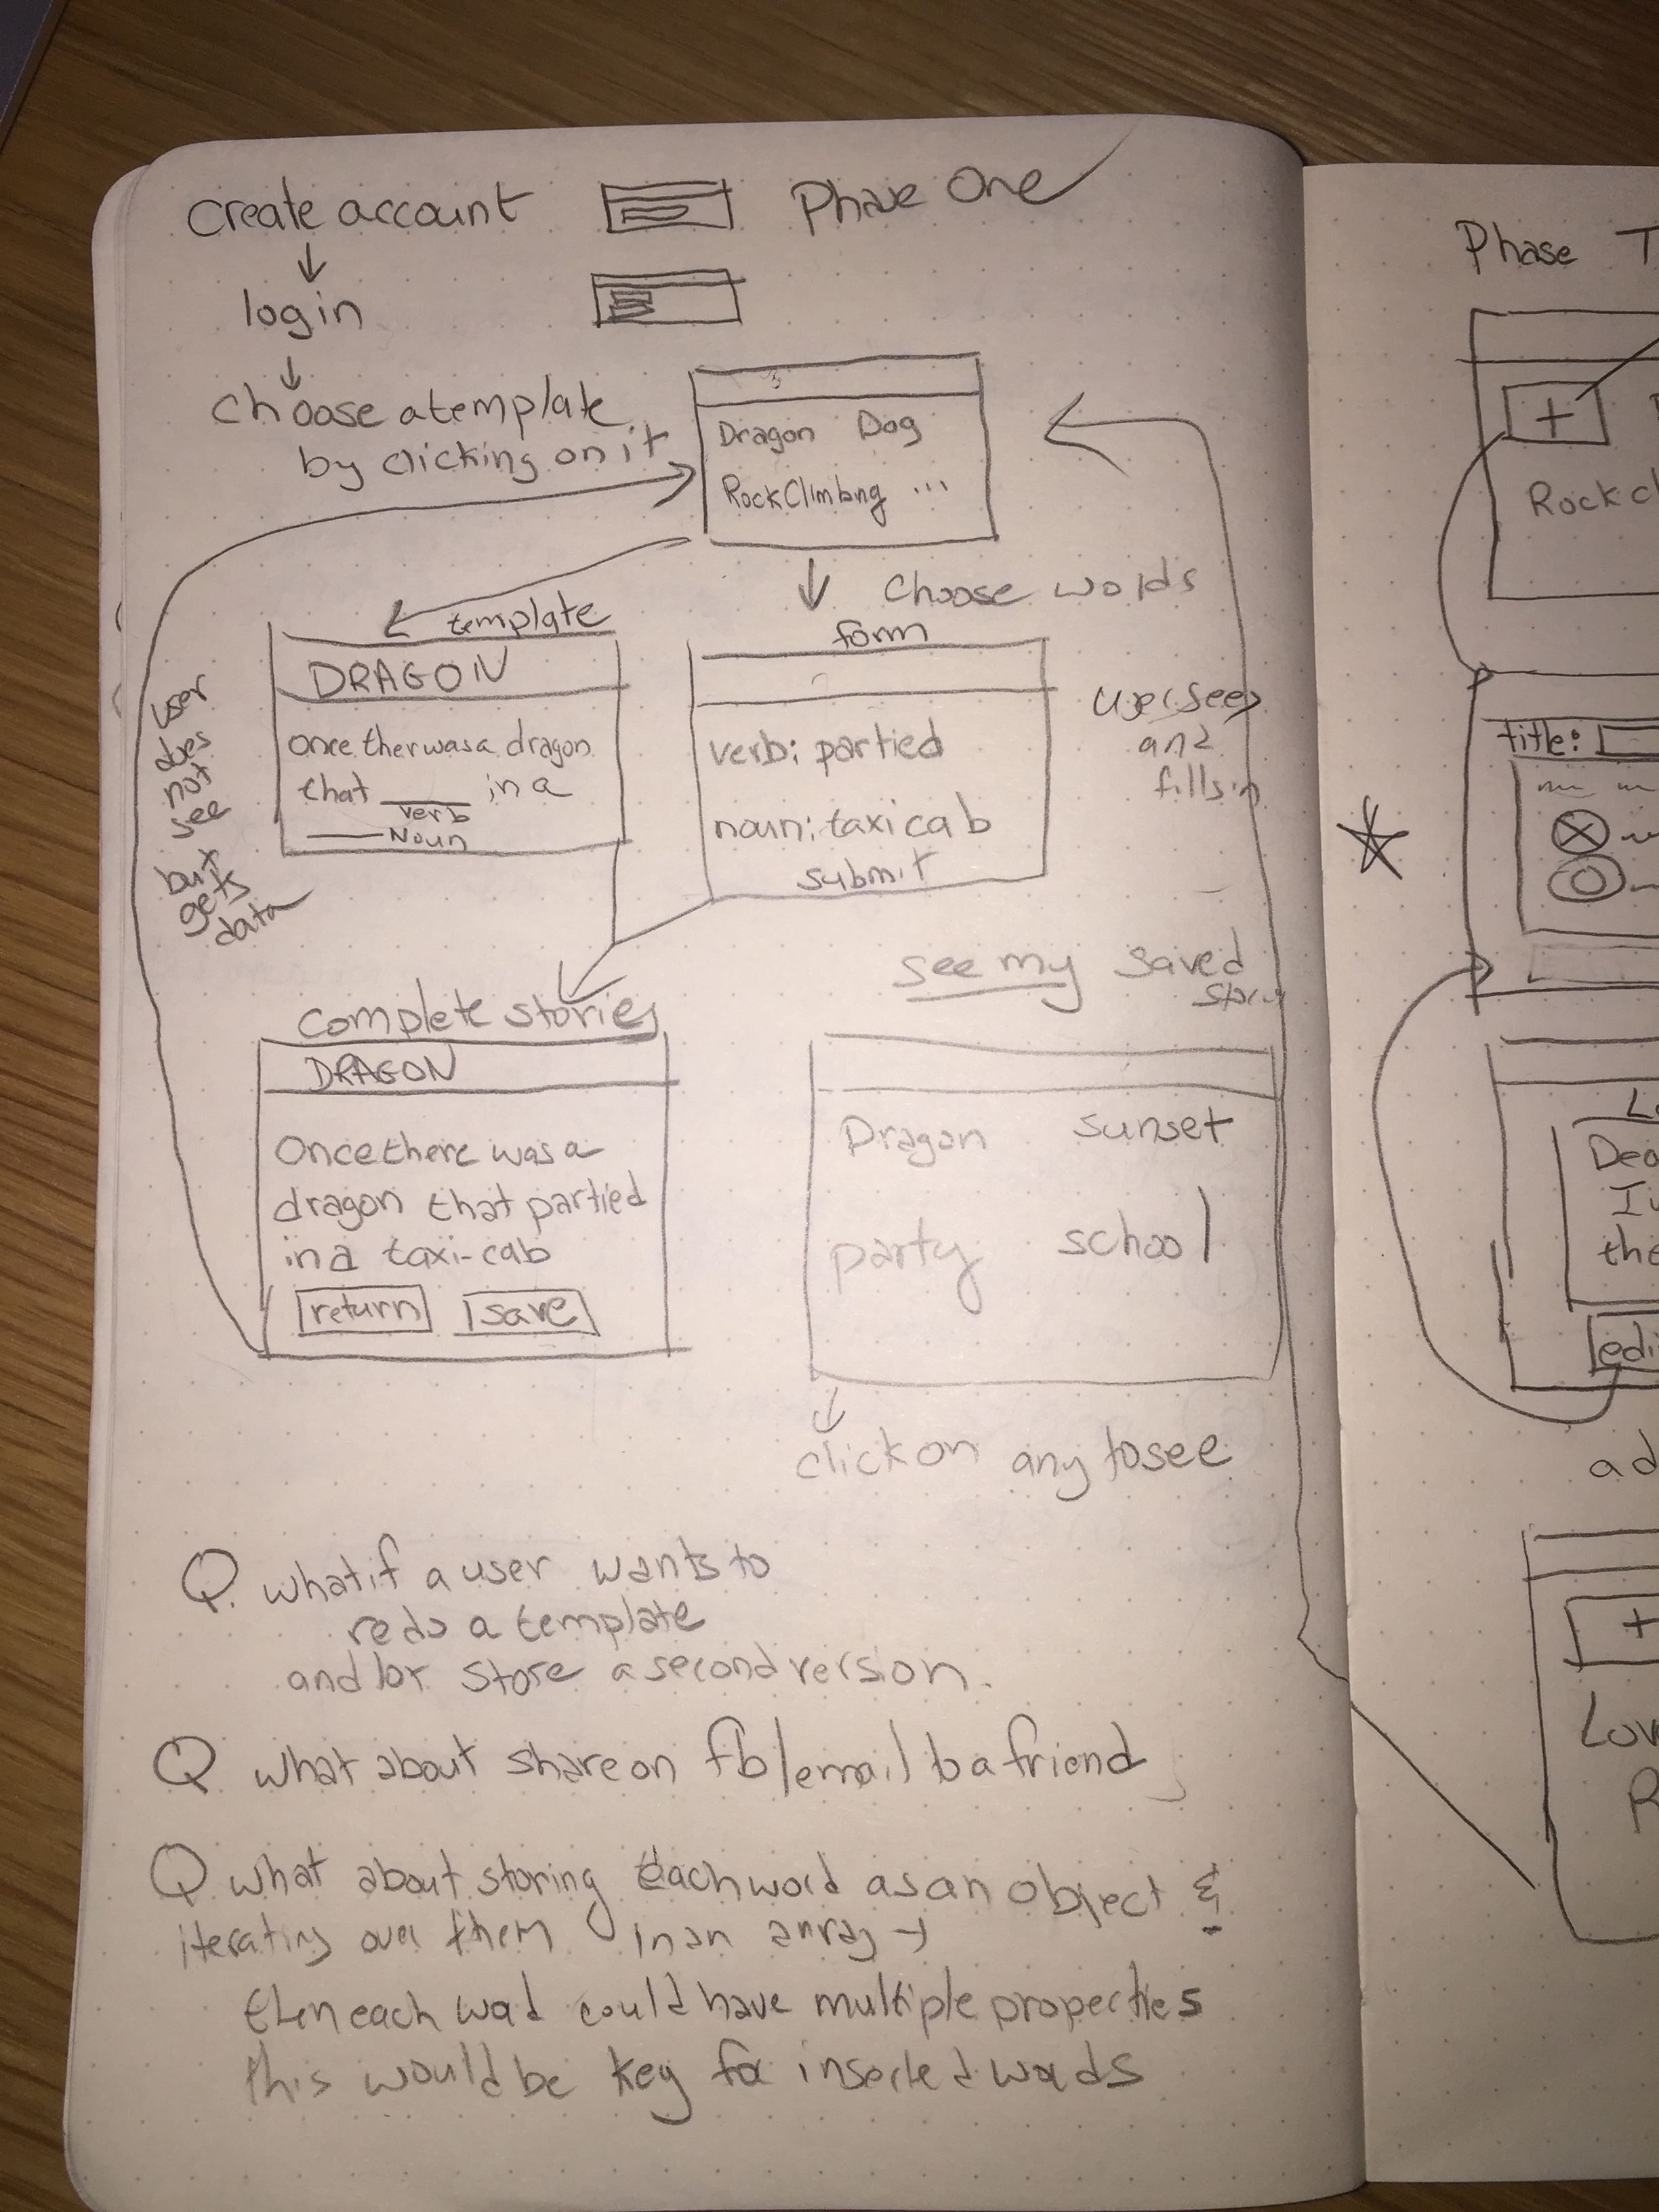 Create account
Phase One
↓
login
↓
Choose a template
by clicking on it
Dragon Dog
RockClimbng ...
↓ Choose words
template
DRAGON
once ther was a dragon
that ____ in a
verb
____ Noun
user
does
not
see
but
gets
data
form
verb: partied
noun: taxi cab
submit
User sees
and
fills in
complete stories
DRAGON
Once there was a
dragon that partied
in a taxi-cab
return save
see my saved
Dragon sunset
party school
↓
click on any to see
Q. what if a user wants to
redo a template
and/or store a second version.
Q what about share on fb/email to a friend
Q what about storing each word as an object &
iterating over them in an array →
then each word could have multiple properties
this would be key for inserted words
Phase T
+
Rock cl
title:
Dea
the
edi
ad
+
Lov
R